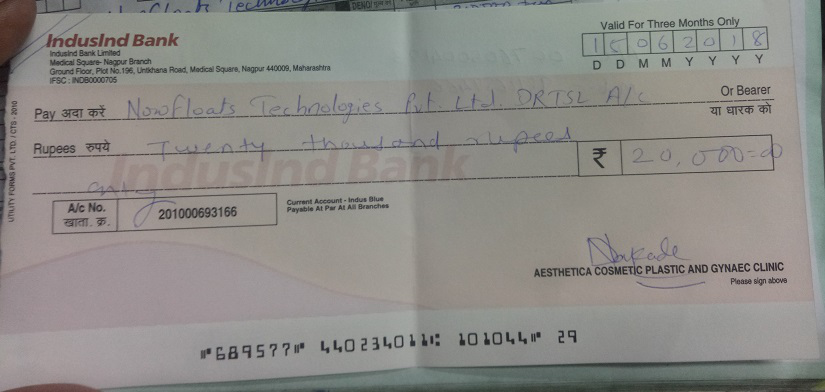 IndusInd Bank
IndusInd Bank Limited
Medical Square- Nagpur Branch
Ground Floor, Plot No.196, Untkhana Road, Medical Square, Nagpur 440009, Maharashtra
IFSC : INDB0000705
Valid For Three Months Only
15062018
D D M M Y Y Y Y
Pay अदा करें Nowfloats Technologies Pvt. Ltd. DRTSL A/c Or Bearer
या धारक को
Rupees रुपये Twenty thousand rupees
only
₹ 20,000=00
IndusInd Bank
A/c No.
खाता. क्र.
201000693166
Current Account - Indus Blue
Payable At Par At All Branches
AESTHETICA COSMETIC PLASTIC AND GYNAEC CLINIC
Please sign above
UTILITY FORMS PVT. LTD. / CTS - 2010
⑈689577⑈ 440234011⑆ 101044⑈ 29